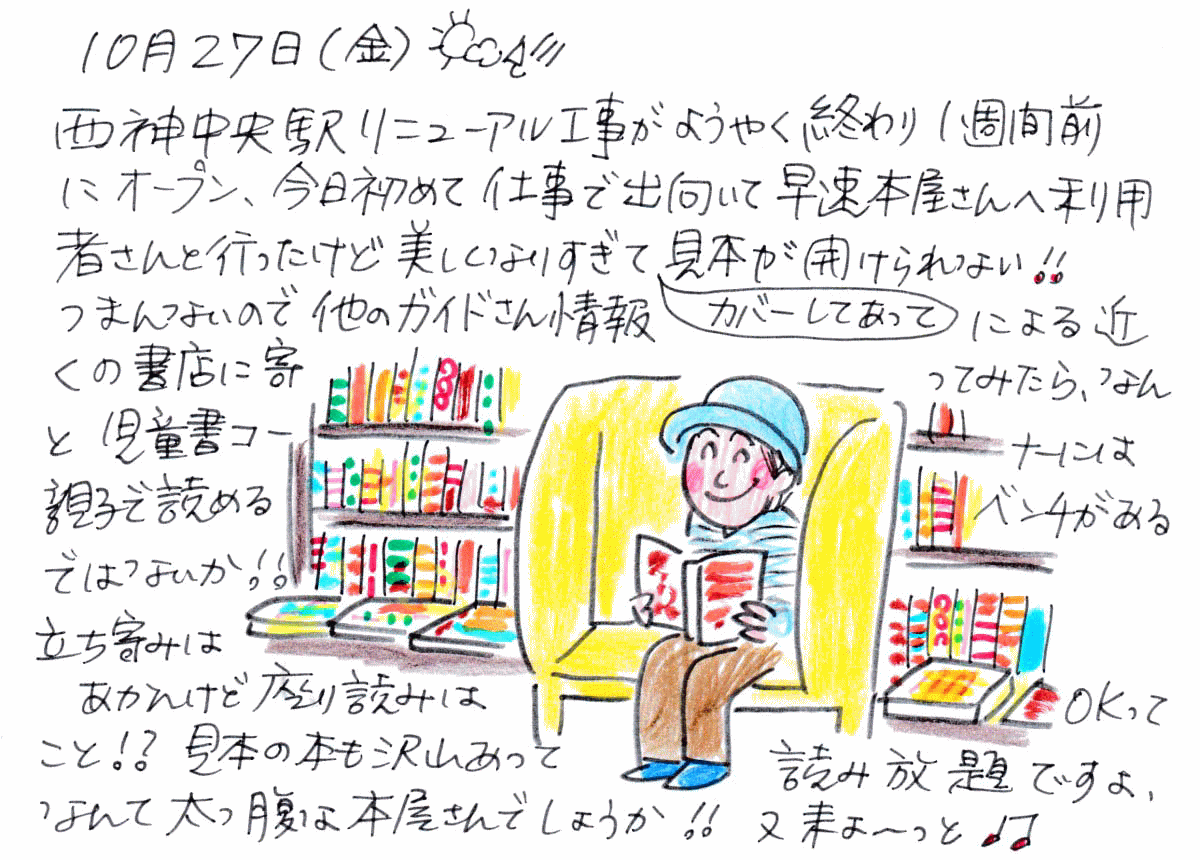 10月27日(金)
西神中央駅リニューアル工事がようやく終わり1週間前
にオープン、今日初めて仕事で出向いて早速本屋さんへ利用
者さんと行ったけど美しくなりすぎて見本が開けられない!!
カバーしてあって
つまんないので他のガイドさん情報による近
くの書店に寄ってみたら、なん
と児童書コーナーには
親子で読めるベンチがある
ではないか!!
立ち寄みは
あかんけど座り読みはOKって
こと!?見本の本も沢山あって読み放題ですよ、
なんて太っ腹な本屋さんでしょうか!!又来よ〜っと♪♫